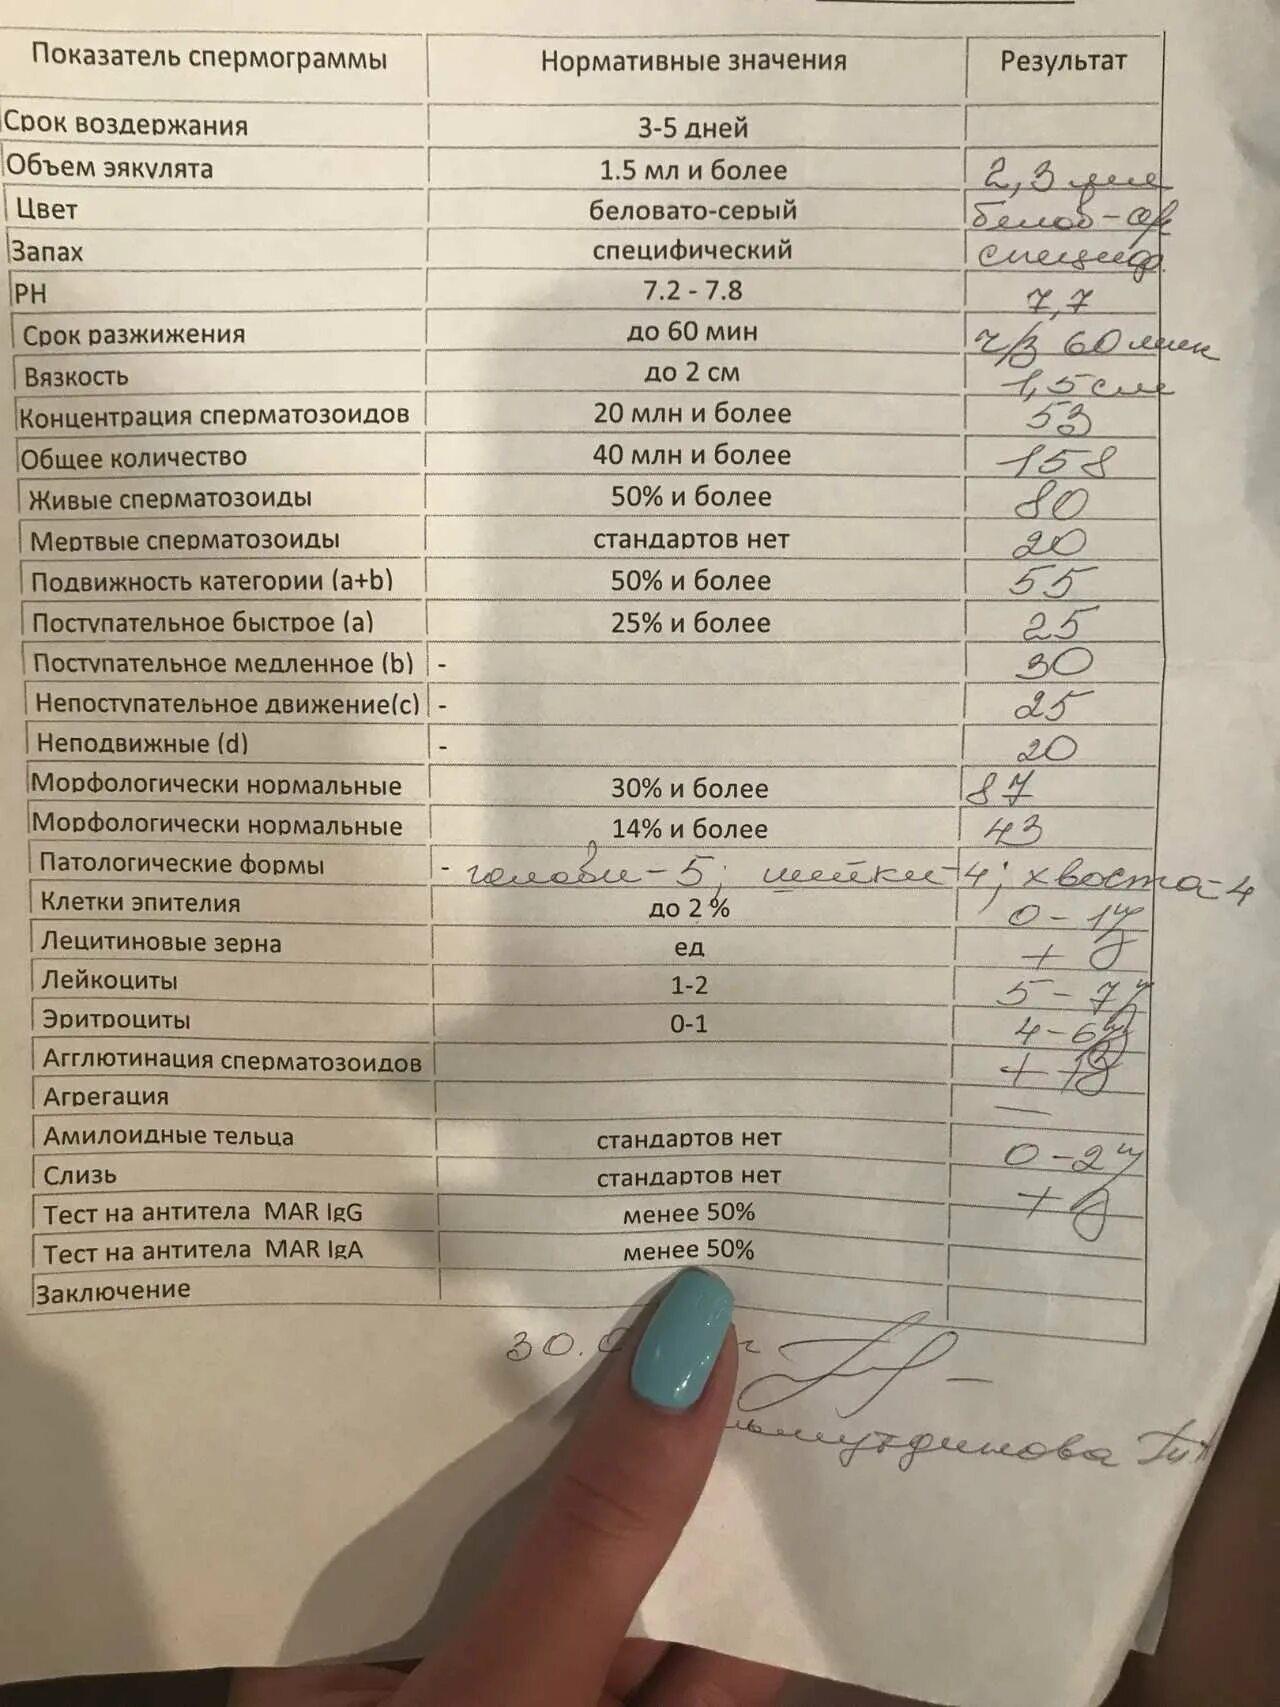 Показатель спермограммы Нормативные значения Результат
Срок воздержания 3-5 дней
Объем эякулята 1.5 мл и более 2,3 мл
Цвет беловато-серый белов-сер
Запах специфический специф.
PH 7.2 - 7.8 7,7
Срок разжижения до 60 мин ч/з 60 мин
Вязкость до 2 см 1,5 см
Концентрация сперматозоидов 20 млн и более 53
Общее количество 40 млн и более 158
Живые сперматозоиды 50% и более 80
Мертвые сперматозоиды стандартов нет 20
Подвижность категории (a+b) 50% и более 55
Поступательное быстрое (a) 25% и более 25
Поступательное медленное (b) - 30
Непоступательное движение(c) - 25
Неподвижные (d) - 20
Морфологически нормальные 30% и более 87
Морфологически нормальные 14% и более 43
Патологические формы - головки - 5; шейки - 4; хвоста - 4
Клетки эпителия до 2 % 0-1
Лецитиновые зерна ед +
Лейкоциты 1-2 5-7
Эритроциты 0-1 4-6
Агглютинация сперматозоидов +
Агрегация —
Амилоидные тельца стандартов нет 0-2
Слизь стандартов нет +
Тест на антитела MAR IgG менее 50%
Тест на антитела MAR IgA менее 50%
Заключение
30.